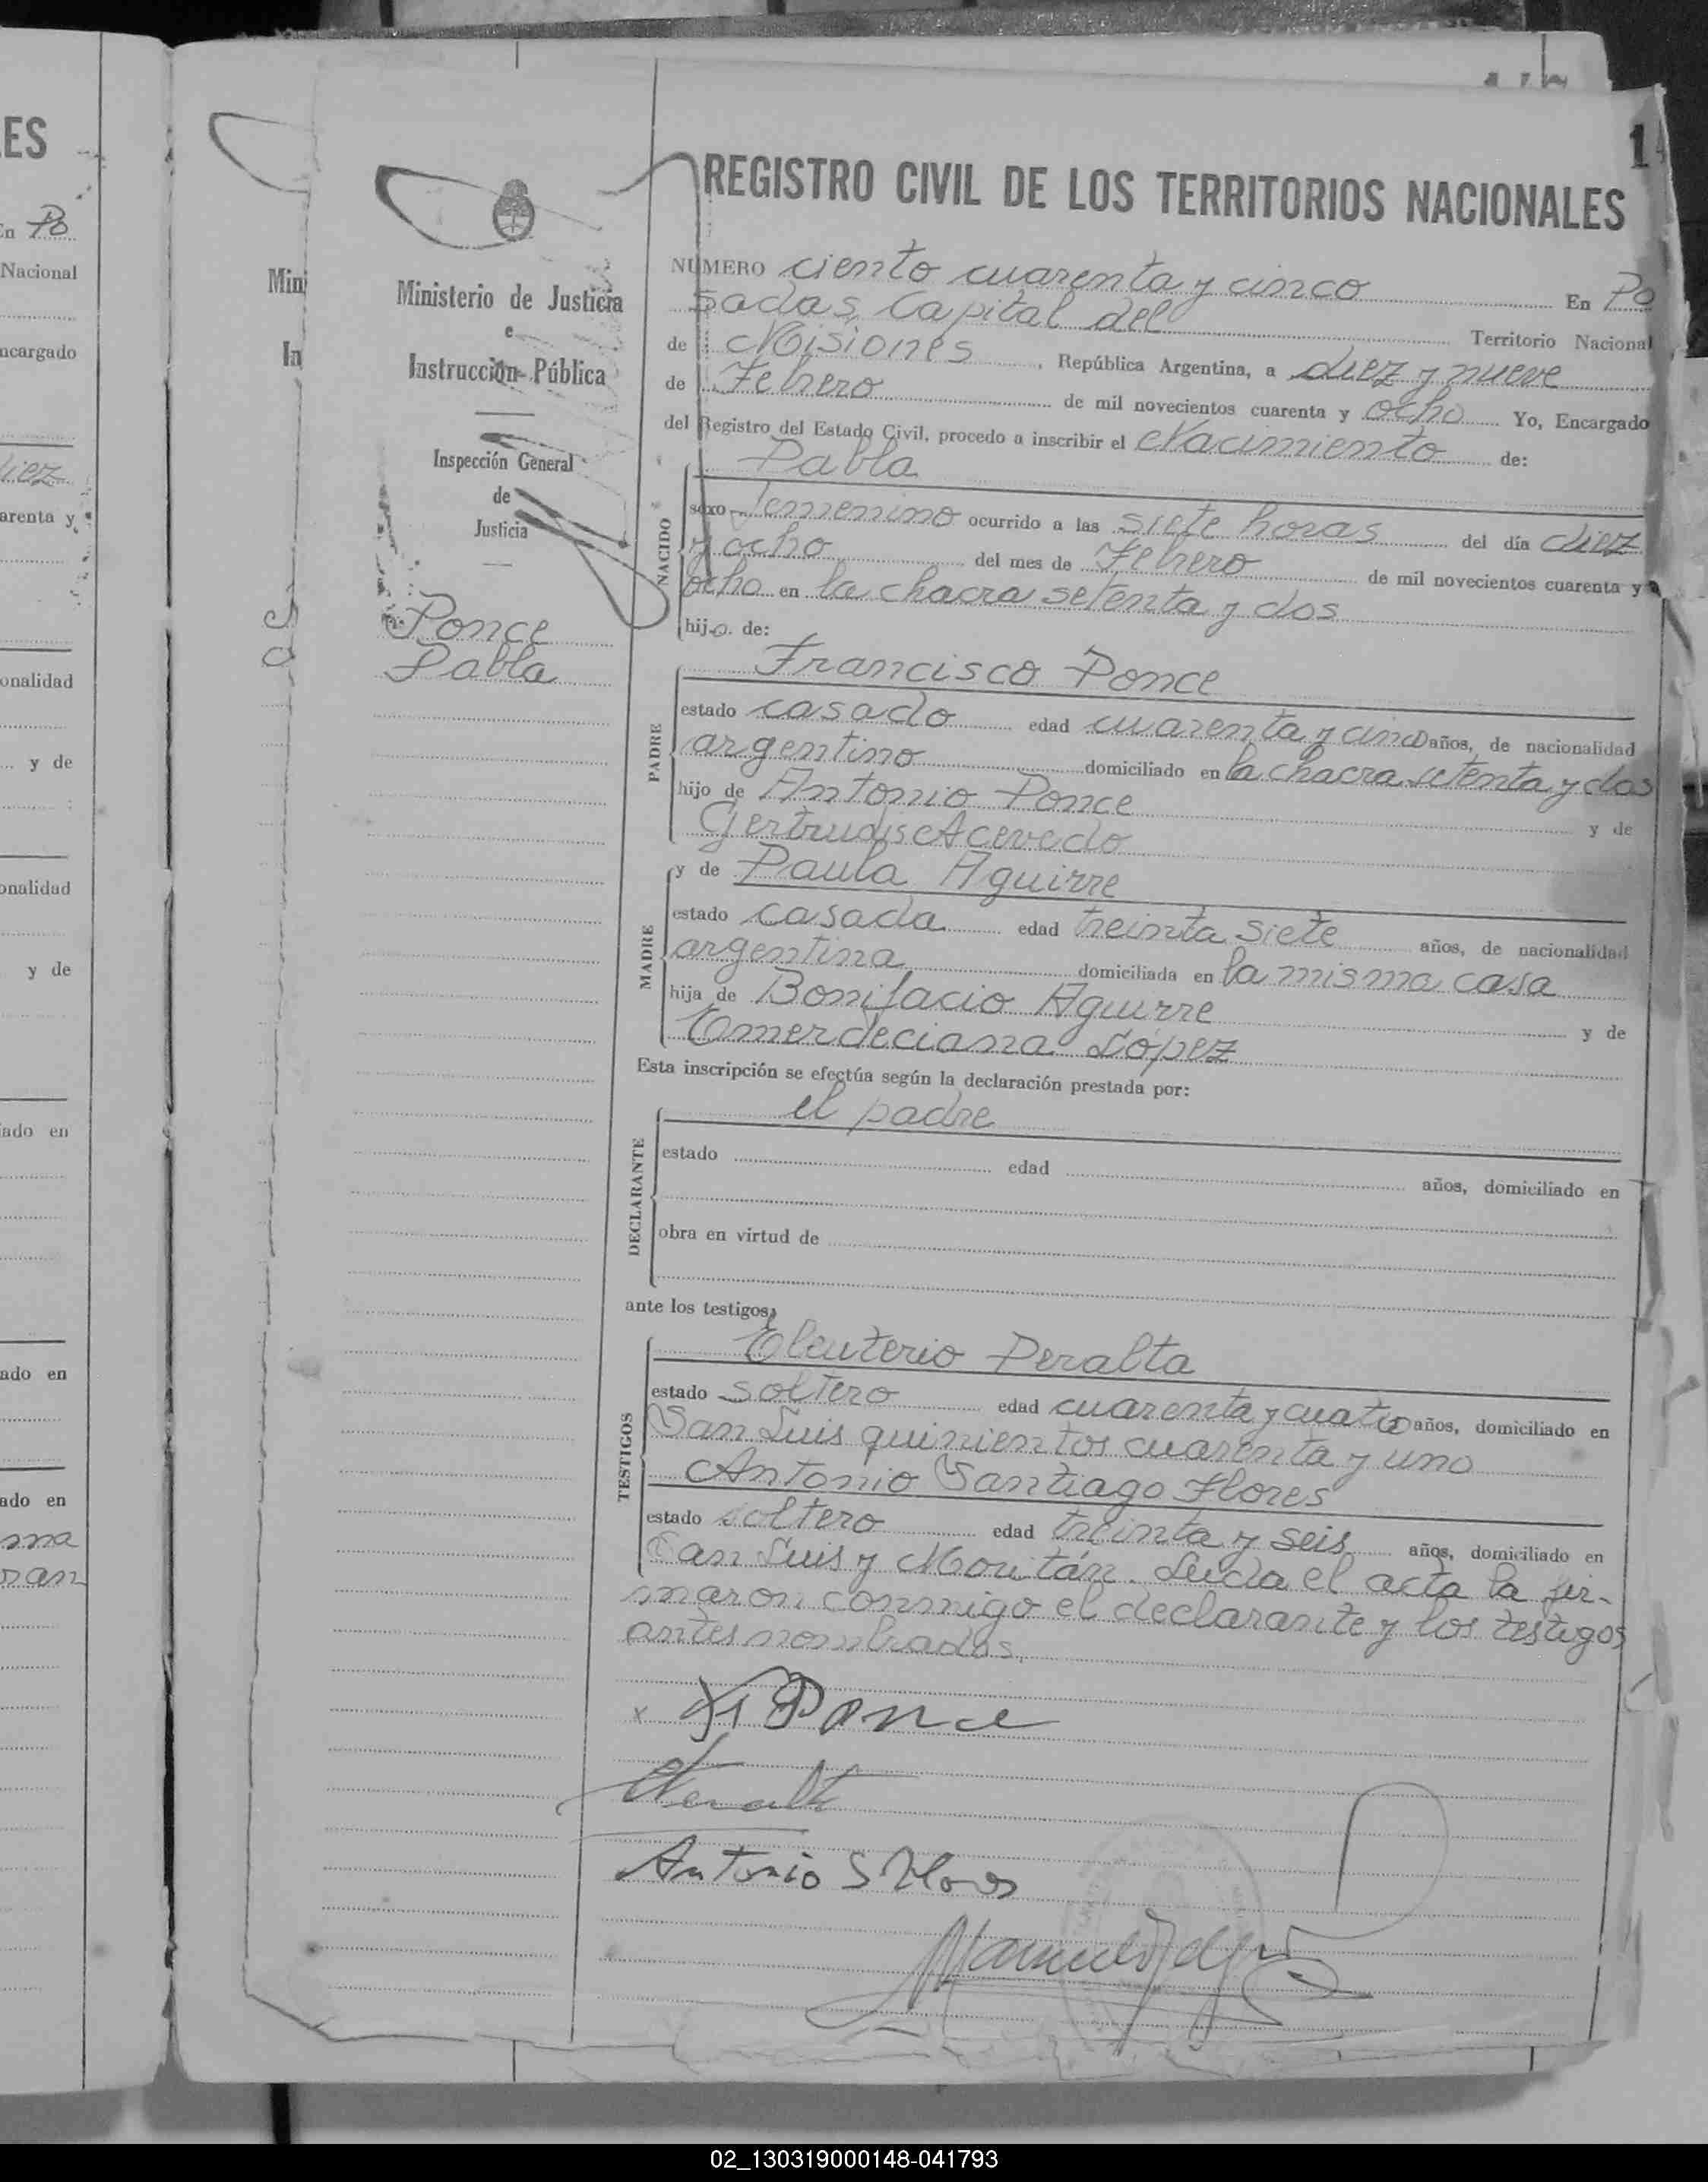 ES
En Po
Nacional
ncargado
diez
arenta y
onalidad
y de
onalidad
y de
ado en
ado en
ado en
ma
ran
Min
In
1
REGISTRO CIVIL DE LOS TERRITORIOS NACIONALES
Ministerio de Justicia
e
Instrucción Pública
Inspección General
de
Justicia
Ponce
Pabla
NÚMERO ciento cuarenta y cinco En Po
sadas, Capital del Territorio Nacional
de Misiones, República Argentina, a diez y nueve
de Febrero de mil novecientos cuarenta y ocho Yo, Encargado
del Registro del Estado Civil, procedo a inscribir el Nacimiento de:
Pabla
NACIDO
sexo femenino ocurrido a las siete horas del día diez
y ocho del mes de Febrero de mil novecientos cuarenta y
ocho en la chacra setenta y dos
hija de:
Francisco Ponce
PADRE
estado casado edad cuarenta y cinco años, de nacionalidad
argentino domiciliado en la chacra setenta y dos
hijo de Antonio Ponce y de
Gertrudis Acevedo
y de Paula Aguirre
MADRE
estado casada edad treinta siete años, de nacionalidad
argentina domiciliada en la misma casa
hija de Bonifacio Aguirre y de
Emerdeciana López
Esta inscripción se efectúa según la declaración prestada por:
el padre
DECLARANTE
estado edad años, domiciliado en
obra en virtud de
ante los testigos,
Eleuterio Peralta
TESTIGOS
estado soltero edad cuarenta y cuatro años, domiciliado en
San Luis quinientos cuarenta y uno
Antonio Santiago Flores
estado soltero edad treinta y seis años, domiciliado en
San Luis y Moritán. Leída el acta la fir-
maron conmigo el declarante y los testigos
antes nombrados.
x Ponce
Peralta
Antonio S Flores
02_130319000148-041793